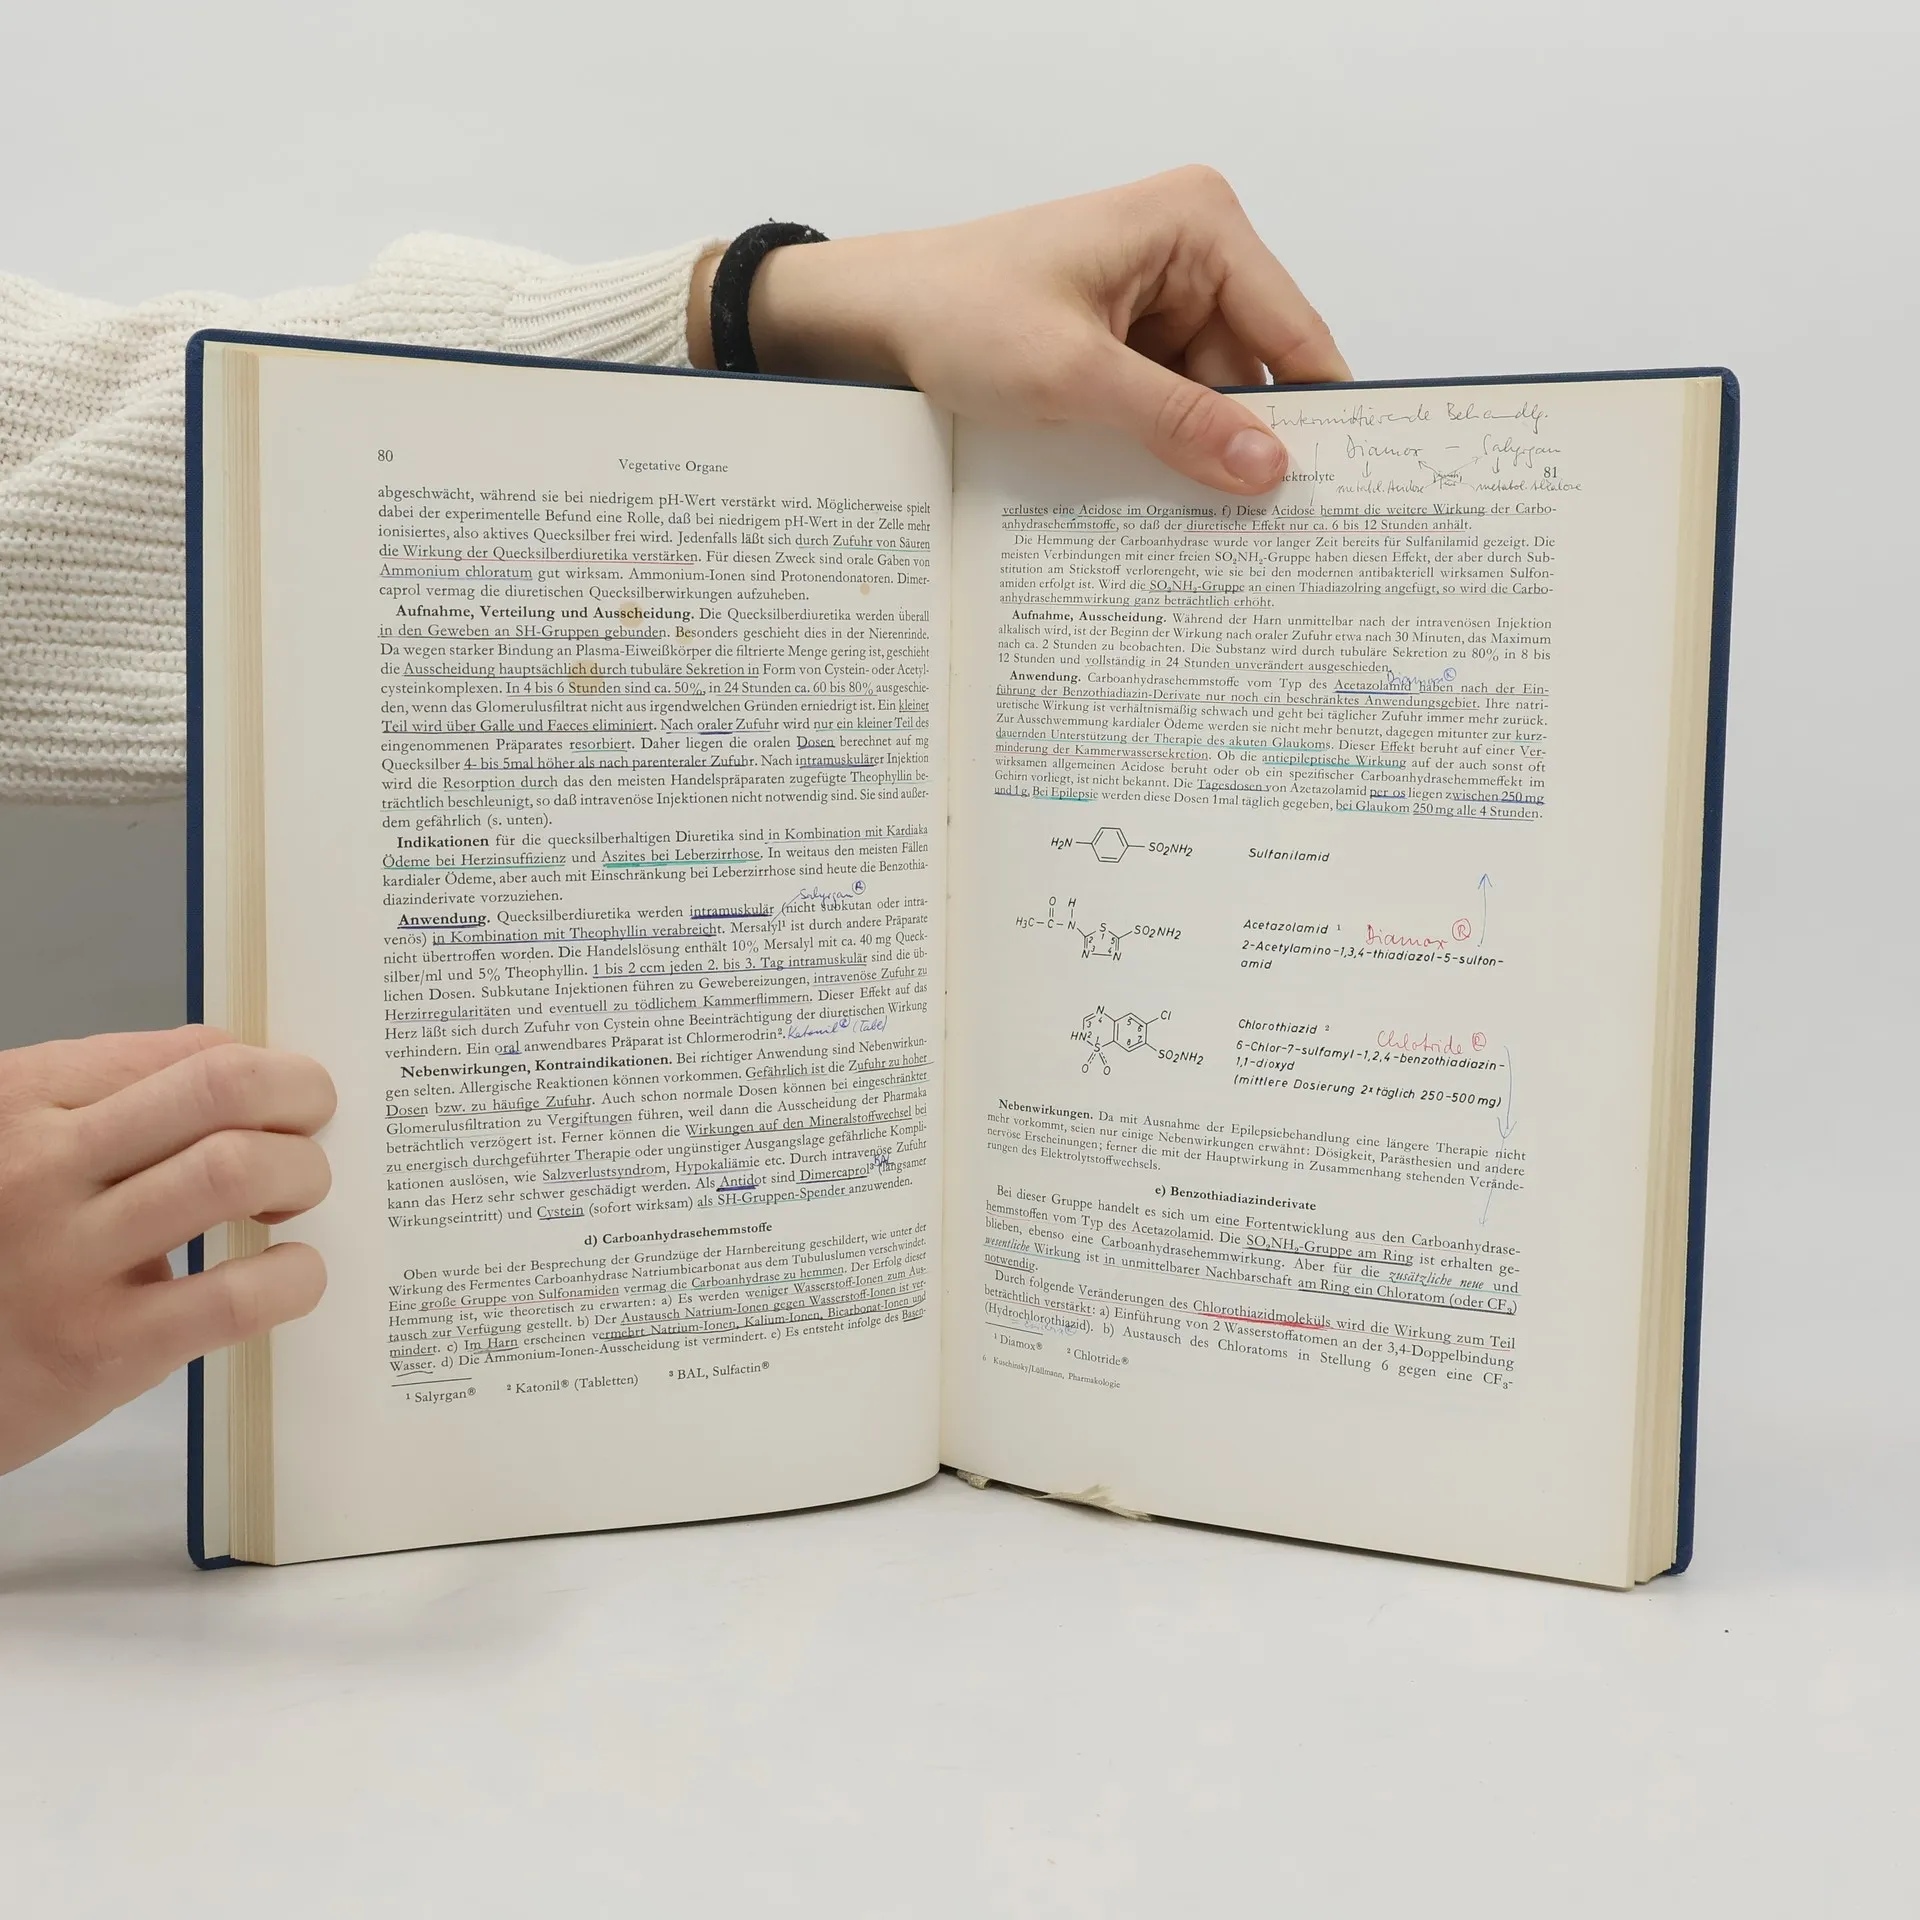 80
Vegetative Organe
abgeschwächt, während sie bei niedrigem pH-Wert verstärkt wird. Möglicherweise spielt
dabei der experimentelle Befund eine Rolle, daß bei niedrigem pH-Wert in der Zelle mehr
ionisiertes, also aktives Quecksilber frei wird. Jedenfalls läßt sich durch Zufuhr von Säuren
die Wirkung der Quecksilberdiuretika verstärken. Für diesen Zweck sind orale Gaben von
Ammonium chloratum gut wirksam. Ammonium-Ionen sind Protonendonatoren. Dimer-
caprol vermag die diuretischen Quecksilberwirkungen aufzuheben.
Aufnahme, Verteilung und Ausscheidung. Die Quecksilberdiuretika werden überall
in den Geweben an SH-Gruppen gebunden. Besonders geschieht dies in der Nierenrinde.
Da wegen starker Bindung an Plasma-Eiweißkörper die filtrierte Menge gering ist, geschieht
die Ausscheidung hauptsächlich durch tubuläre Sekretion in Form von Cystein- oder Acetyl-
cysteinkomplexen. In 4 bis 6 Stunden sind ca. 50%, in 24 Stunden ca. 60 bis 80% ausgeschie-
den, wenn das Glomerulusfiltrat nicht aus irgendwelchen Gründen erniedrigt ist. Ein kleiner
Teil wird über Galle und Faeces eliminiert. Nach oraler Zufuhr wird nur ein kleiner Teil des
eingenommenen Präparates resorbiert. Daher liegen die oralen Dosen berechnet auf mg
Quecksilber 4- bis 5mal höher als nach parenteraler Zufuhr. Nach intramuskulärer Injektion
wird die Resorption durch das den meisten Handelspräparaten zugefügte Theophyllin be-
trächtlich beschleunigt, so daß intravenöse Injektionen nicht notwendig sind. Sie sind außer-
dem gefährlich (s. unten).
Indikationen für die quecksilberhaltigen Diuretika sind in Kombination mit Kardiaka
Ödeme bei Herzinsuffizienz und Aszites bei Leberzirrhose. In weitaus den meisten Fällen
kardialer Ödeme, aber auch mit Einschränkung bei Leberzirrhose sind heute die Benzothia-
diazinderivate vorzuziehen.
Salyrgan®
Anwendung. Quecksilberdiuretika werden intramuskulär (nicht subkutan oder intra-
venös) in Kombination mit Theophyllin verabreicht. Mersalyl¹ ist durch andere Präparate
nicht übertroffen worden. Die Handelslösung enthält 10% Mersalyl mit ca. 40 mg Queck-
silber/ml und 5% Theophyllin. 1 bis 2 ccm jeden 2. bis 3. Tag intramuskulär sind die üb-
lichen Dosen. Subkutane Injektionen führen zu Gewebereizungen, intravenöse Zufuhr zu
Herzirregularitäten und eventuell zu tödlichem Kammerflimmern. Dieser Effekt auf das
Herz läßt sich durch Zufuhr von Cystein ohne Beeinträchtigung der diuretischen Wirkung
verhindern. Ein oral anwendbares Präparat ist Chlormerodrin². Katonil® (Tabl)
Nebenwirkungen, Kontraindikationen. Bei richtiger Anwendung sind Nebenwirkun-
gen selten. Allergische Reaktionen können vorkommen. Gefährlich ist die Zufuhr zu hoher
Dosen bzw. zu häufige Zufuhr. Auch schon normale Dosen können bei eingeschränkter
Glomerulusfiltration zu Vergiftungen führen, weil dann die Ausscheidung der Pharmaka
beträchtlich verzögert ist. Ferner können die Wirkungen auf den Mineralstoffwechsel bei
zu energisch durchgeführter Therapie oder ungünstiger Ausgangslage gefährliche Kompli-
kationen auslösen, wie Salzverlustsyndrom, Hypokaliämie etc. Durch intravenöse Zufuhr
kann das Herz sehr schwer geschädigt werden. Als Antidot sind Dimercaprol³ (langsamer
Wirkungseintritt) und Cystein (sofort wirksam) als SH-Gruppen-Spender anzuwenden.
d) Carboanhydrasehemmstoffe
Oben wurde bei der Besprechung der Grundzüge der Harnbereitung geschildert, wie unter der
Wirkung des Fermentes Carboanhydrase Natriumbicarbonat aus dem Tubuluslumen verschwindet.
Eine große Gruppe von Sulfonamiden vermag die Carboanhydrase zu hemmen. Der Erfolg dieser
Hemmung ist, wie theoretisch zu erwarten: a) Es werden weniger Wasserstoff-Ionen zum Aus-
tausch zur Verfügung gestellt. b) Der Austausch Natrium-Ionen gegen Wasserstoff-Ionen ist ver-
mindert. c) Im Harn erscheinen vermehrt Natrium-Ionen, Kalium-Ionen, Bicarbonat-Ionen und
Wasser. d) Die Ammonium-Ionen-Ausscheidung ist vermindert. e) Es entsteht infolge des Basen-
¹ Salyrgan® ² Katonil® (Tabletten) ³ BAL, Sulfactin®
Intermittierende Behandlg.
Diamox — Salyrgan
ektrolyte 81
metabol. Acidose metabol. Alkalose
verlustes eine Acidose im Organismus. f) Diese Acidose hemmt die weitere Wirkung der Carbo-
anhydrasehemmstoffe, so daß der diuretische Effekt nur ca. 6 bis 12 Stunden anhält.
Die Hemmung der Carboanhydrase wurde vor langer Zeit bereits für Sulfanilamid gezeigt. Die
meisten Verbindungen mit einer freien SO₂NH₂-Gruppe haben diesen Effekt, der aber durch Sub-
stitution am Stickstoff verlorengeht, wie sie bei den modernen antibakteriell wirksamen Sulfon-
amiden erfolgt ist. Wird die SO₂NH₂-Gruppe an einen Thiadiazolring angefügt, so wird die Carbo-
anhydrasehemmwirkung ganz beträchtlich erhöht.
Aufnahme, Ausscheidung. Während der Harn unmittelbar nach der intravenösen Injektion
alkalisch wird, ist der Beginn der Wirkung nach oraler Zufuhr etwa nach 30 Minuten, das Maximum
nach ca. 2 Stunden zu beobachten. Die Substanz wird durch tubuläre Sekretion zu 80% in 8 bis
12 Stunden und vollständig in 24 Stunden unverändert ausgeschieden.
Diamox®
Anwendung. Carboanhydrasehemmstoffe vom Typ des Acetazolamid haben nach der Ein-
führung der Benzothiadiazin-Derivate nur noch ein beschränktes Anwendungsgebiet. Ihre natri-
uretische Wirkung ist verhältnismäßig schwach und geht bei täglicher Zufuhr immer mehr zurück.
Zur Ausschwemmung kardialer Ödeme werden sie nicht mehr benutzt, dagegen mitunter zur kurz-
dauernden Unterstützung der Therapie des akuten Glaukoms. Dieser Effekt beruht auf einer Ver-
minderung der Kammerwassersekretion. Ob die antiepileptische Wirkung auf der auch sonst oft
wirksamen allgemeinen Acidose beruht oder ob ein spezifischer Carboanhydrasehemmeffekt im
Gehirn vorliegt, ist nicht bekannt. Die Tagesdosen von Azetazolamid per os liegen zwischen 250 mg
und 1 g. Bei Epilepsie werden diese Dosen 1mal täglich gegeben, bei Glaukom 250 mg alle 4 Stunden.
H₂N SO₂NH₂ Sulfanilamid
O H
H₃C–C–N S SO₂NH₂ Acetazolamid ¹ Diamox®
1 2 3 4 5 N N
2-Acetylamino-1,3,4-thiadiazol-5-sulfon-
amid
N Cl
HN S SO₂NH₂ Chlorothiazid ² Chlotride®
1 2 3 4 5 6 7 8
O O
6-Chlor-7-sulfamyl-1,2,4-benzothiadiazin-
1,1-dioxyd
(mittlere Dosierung 2ˣ täglich 250-500 mg)
Nebenwirkungen. Da mit Ausnahme der Epilepsiebehandlung eine längere Therapie nicht
mehr vorkommt, seien nur einige Nebenwirkungen erwähnt: Dösigkeit, Parästhesien und andere
nervöse Erscheinungen; ferner die mit der Hauptwirkung in Zusammenhang stehenden Verände-
rungen des Elektrolytstoffwechsels.
e) Benzothiadiazinderivate
Bei dieser Gruppe handelt es sich um eine Fortentwicklung aus den Carboanhydrase-
hemmstoffen vom Typ des Acetazolamid. Die SO₂NH₂-Gruppe am Ring ist erhalten ge-
blieben, ebenso eine Carboanhydrasehemmwirkung. Aber für die zusätzliche neue und
wesentliche Wirkung ist in unmittelbarer Nachbarschaft am Ring ein Chloratom (oder CF₃)
notwendig.
Durch folgende Veränderungen des Chlorothiazidmoleküls wird die Wirkung zum Teil
beträchtlich verstärkt: a) Einführung von 2 Wasserstoffatomen an der 3,4-Doppelbindung
(Hydrochlorothiazid). b) Austausch des Chloratoms in Stellung 6 gegen eine CF₃-
¹ Diamox® ² Chlotride®
6 Kuschinsky/Lüllmann, Pharmakologie